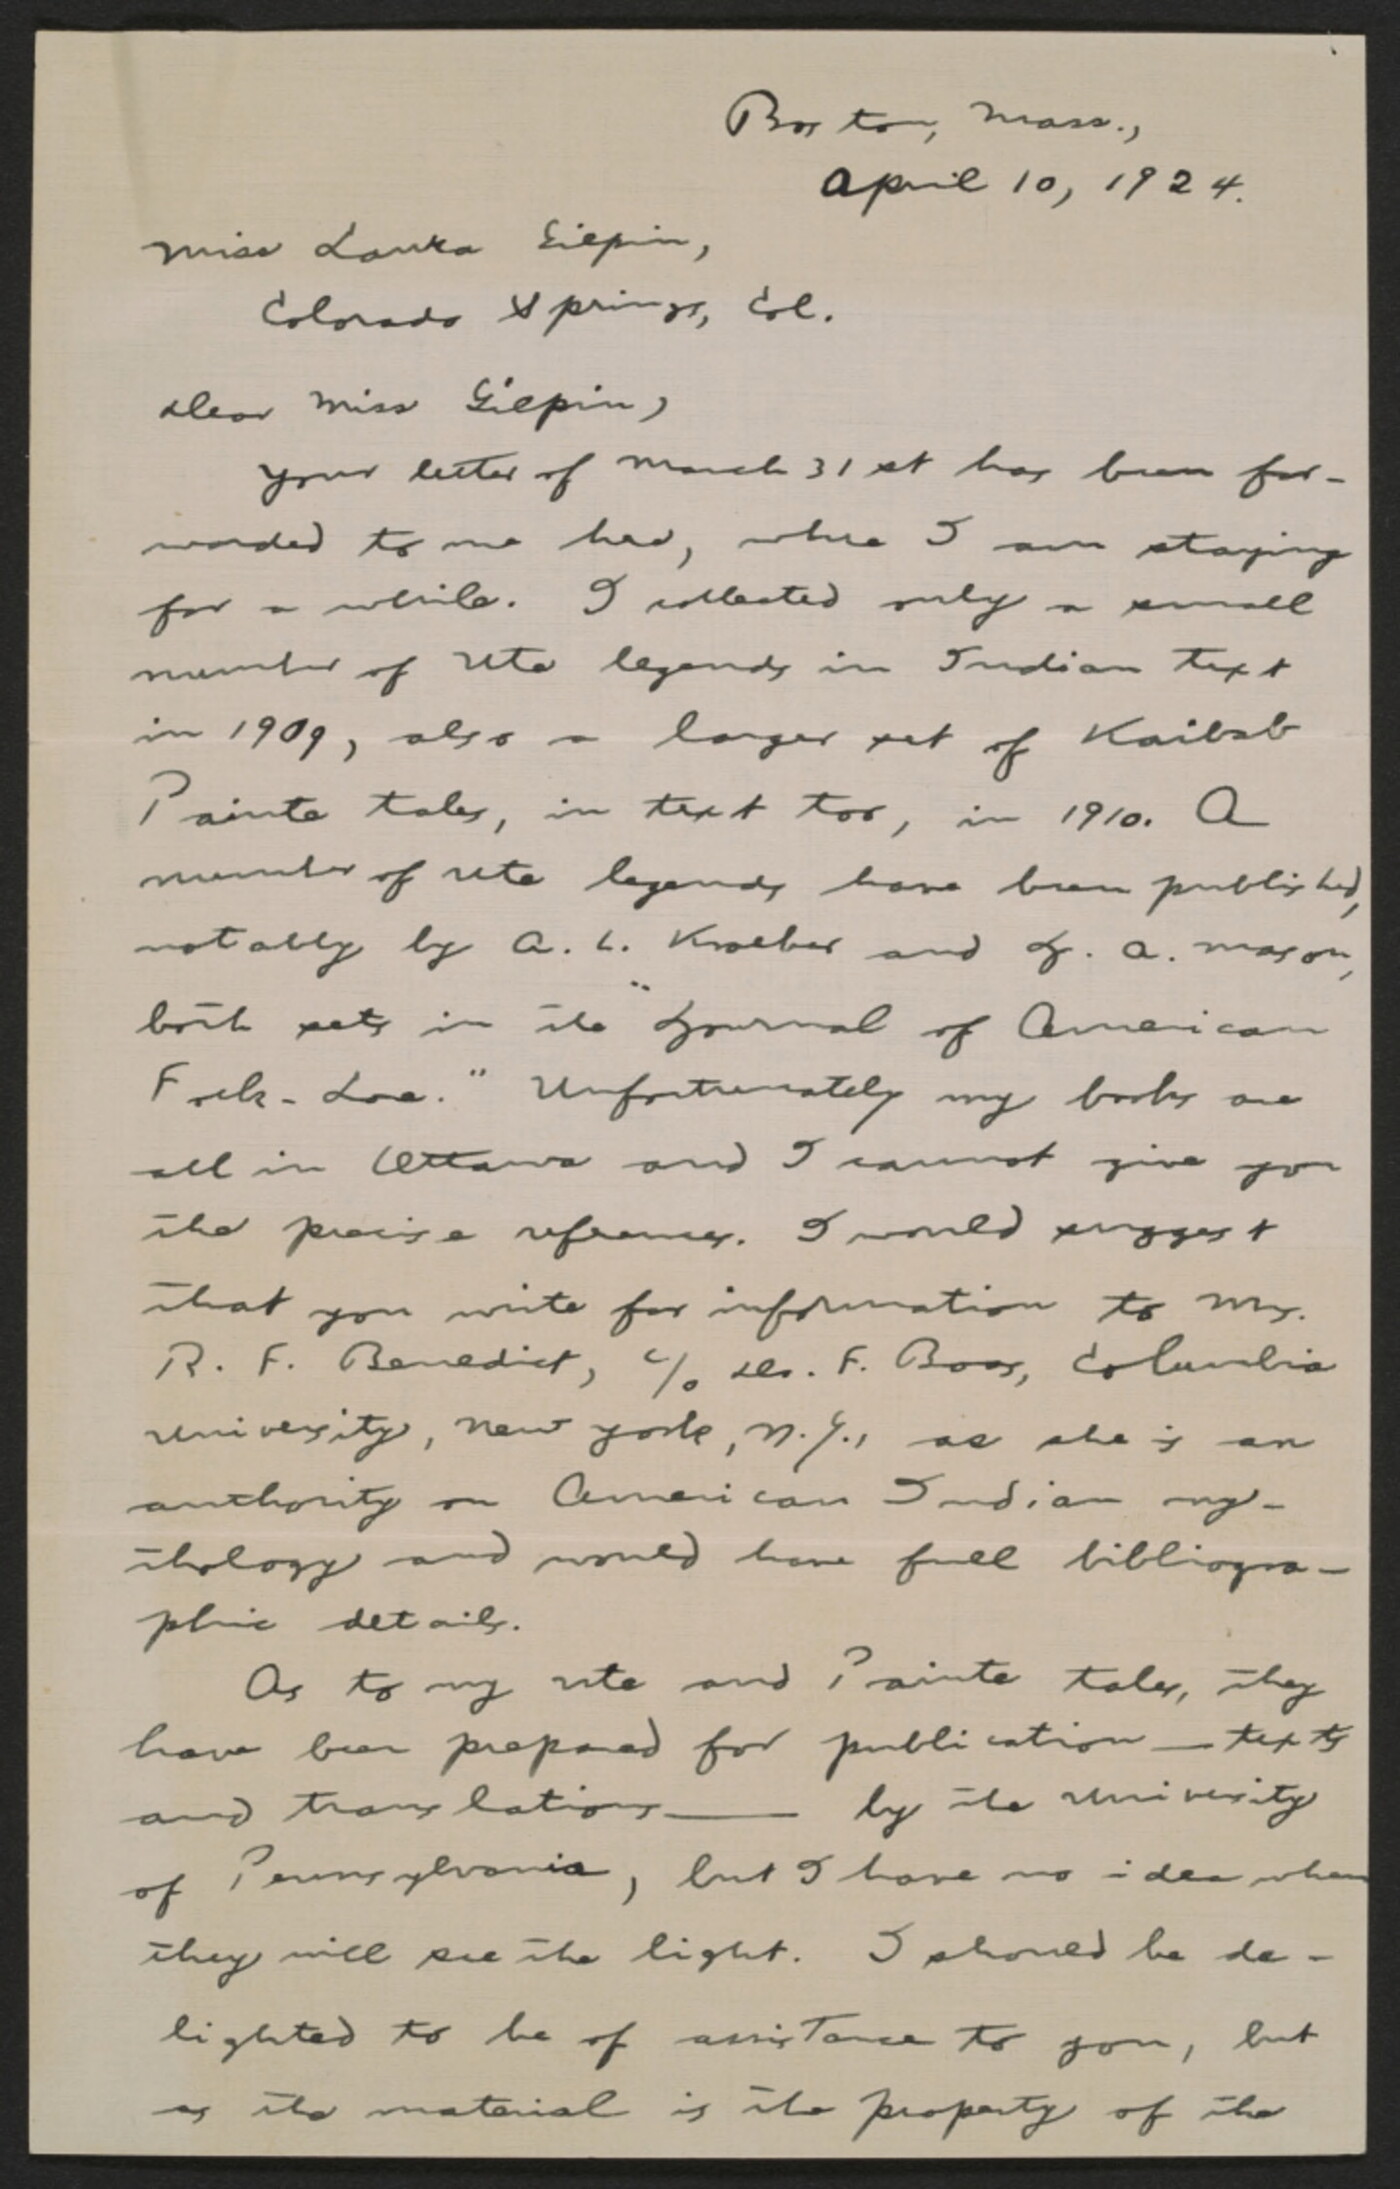 Boston, Mass.,
April 10, 1924.
Miss Laura Gilpin,
Colorado Springs, Col.
Dear Miss Gilpin,
Your letter of March 31st has been for-
warded to me here, where I am staying
for a while. I collected only a small
number of Ute legends in Indian text
in 1909, also a larger set of Kaibab
Paiute tales, in text too, in 1910. A
number of Ute legends have been published,
notably by A. L. Kroeber and J. A. Mason,
both sets in the "Journal of American
Folk-Lore." Unfortunately my books are
all in Ottawa and I cannot give you
the precise references. I would suggest
that you write for information to Mrs.
R. F. Benedict, c/o Dr. F. Boas, Columbia
University, New York, N.Y., as she is an
authority on American Indian my-
thology and would have full bibliogra-
phic details.
As to my Ute and Paiute tales, they
have been prepared for publication — texts
and translations — by the University
of Pennsylvania, but I have no idea when
they will see the light. I should be de-
lighted to be of assistance to you, but
as the material is the property of the